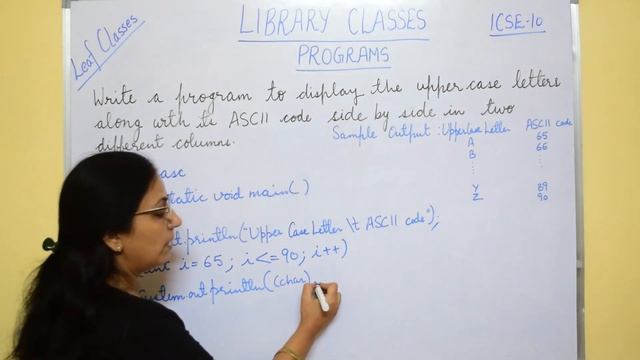 Leaf Classes
LIBRARY CLASSES
ICSE-10
PROGRAMS
Write a program to display the upper case letters
along with its ASCII code side by side in two
different columns.
Sample Output : UpperCase Letter ASCII code
A 65
B 66
: :
Y 89
Z 90
static void main( )
println("Upper Case Letter \t ASCII code");
i=65 ; i<=90; i++)
System.out.println((char)